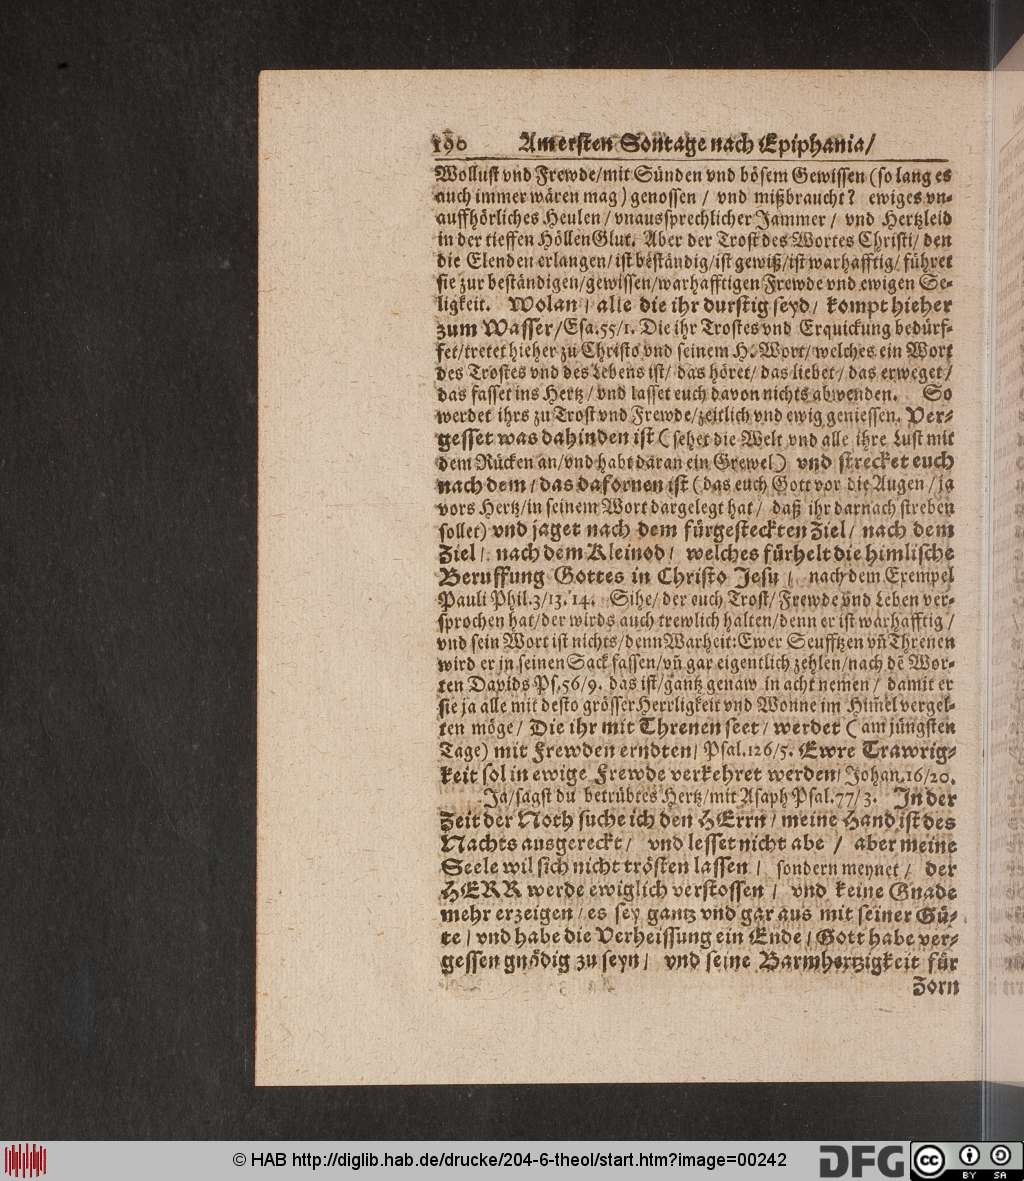 190 Am ersten Sontage nach Epiphania/
Wollust vnd Frewde/mit Sünden vnd bösem Gewissen (so lang es
auch immer wären mag) genossen / vnd mißbraucht? ewiges vn-
auffhörliches Heulen/vnaussprechlicher Jammer/ vnd Hertzleid
in der tieffen HöllenGlut. Aber der Trost des Wortes Christi/ den
die Elenden erlangen/ist beständig/ist gewiß/ist warhafftig/ führet
sie zur beständigen/gewissen/warhafftigen Frewde vnd ewigen Se-
ligkeit. Wolan/ alle die ihr durstig seyd/ kompt hieher
zum Wasser/Esa.55/1. Die ihr Trostes vnd Erquickung bedürf-
fet/tretet hieher zu Christo vnd seinem H. Wort/welches ein Wort
des Trostes vnd des Lebens ist/ das höret/ das liebet/ das erweget/
das fasset ins Hertz/ vnd lasset euch davon nichts abwenden. So
werdet ihrs zu Trost vnd Frewde/zeitlich vnd ewig geniessen. Ver-
gesset was dahinden ist (sehet die Welt vnd alle ihre Lust mit
dem Rücken an/vnd habt daran ein Grewel) vnd strecket euch
nach dem/ das dafornen ist (das euch Gott vor die Augen/ja
vors Hertz/in seinem Wort dargelegt hat/ daß ihr darnach streben
sollet) vnd jaget nach dem fürgesteckten Ziel/ nach dem
Ziel/ nach dem Kleinod/ welches fürhelt die himlische
Beruffung Gottes in Christo Jesu/ nach dem Exempel
Pauli Phil.3/13.14. Sihe/ der euch Trost/Frewde vnd Leben ver-
sprochen hat/der wirds auch trewlich halten/denn er ist warhafftig/
vnd sein Wort ist nichts/denn Warheit: Ewer Seufftzen vn̄ Threnen
wird er in seinen Sack fassen/vn̄ gar eigentlich zehlen/nach dē Wor-
ten Davids Ps.56/9. das ist/gantz genaw in acht nemen/ damit er
sie ja alle mit desto grösser Herrligkeit vnd Wonne im Him̄el vergel-
ten möge/ Die ihr mit Threnen seet/ werdet (am jüngsten
Tage) mit Frewden erndten/ Psal.126/5. Ewre Trawrig-
keit sol in ewige Frewde verkehret werden/ Johan.16/20.
Ja/sagst du betrübtes Hertz/mit Asaph Psal.77/3. In der
Zeit der Noth suche ich den HErrn/ meine Hand ist des
Nachts ausgereckt/ vnd lesset nicht abe / aber meine
Seele wil sich nicht trösten lassen/ sondern meynet/ der
HERR werde ewiglich verstossen/ vnd keine Gnade
mehr erzeigen/ es sey gantz vnd gar aus mit seiner Gü-
te/ vnd habe die Verheissung ein Ende/ Gott habe ver-
gessen gnädig zu seyn/ vnd seine Barmhertzigkeit für
Zorn
© HAB http://diglib.hab.de/drucke/204-6-theol/start.htm?image=00242
DFG
cc BY SA